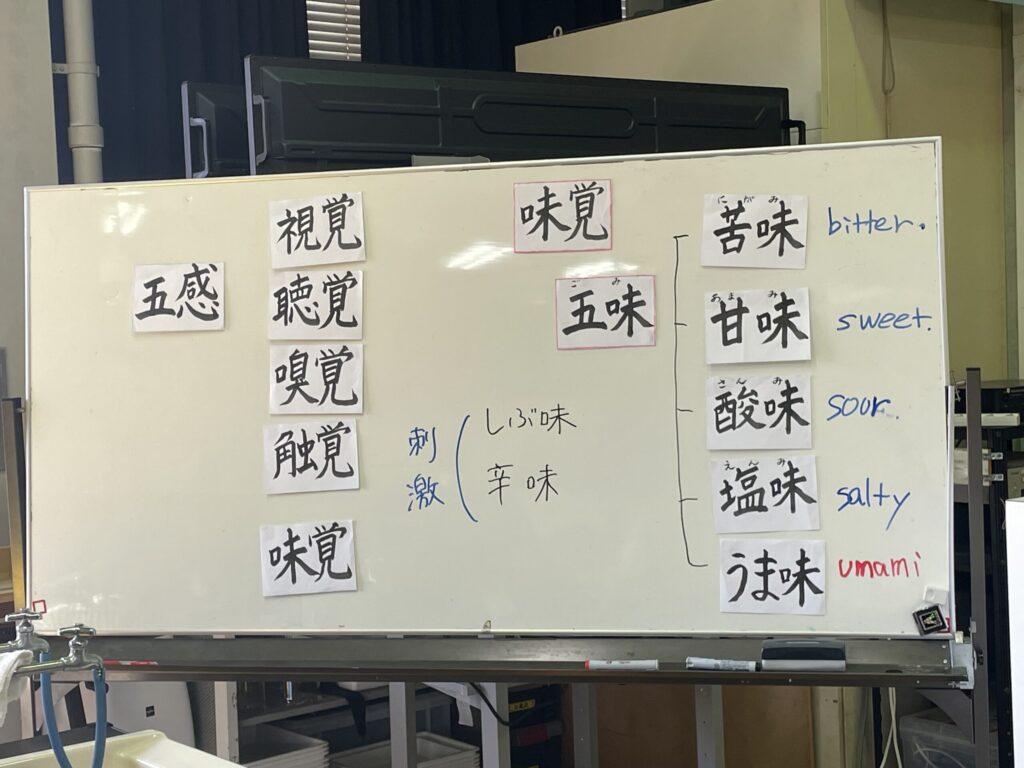 五感
視覚
聴覚
嗅覚
触覚
味覚
刺激
しぶ味
辛味
味覚
ごみ
五味
にがみ
苦味 bitter.
あまみ
甘味 sweet.
さんみ
酸味 sour.
えんみ
塩味 salty
うま味 umami